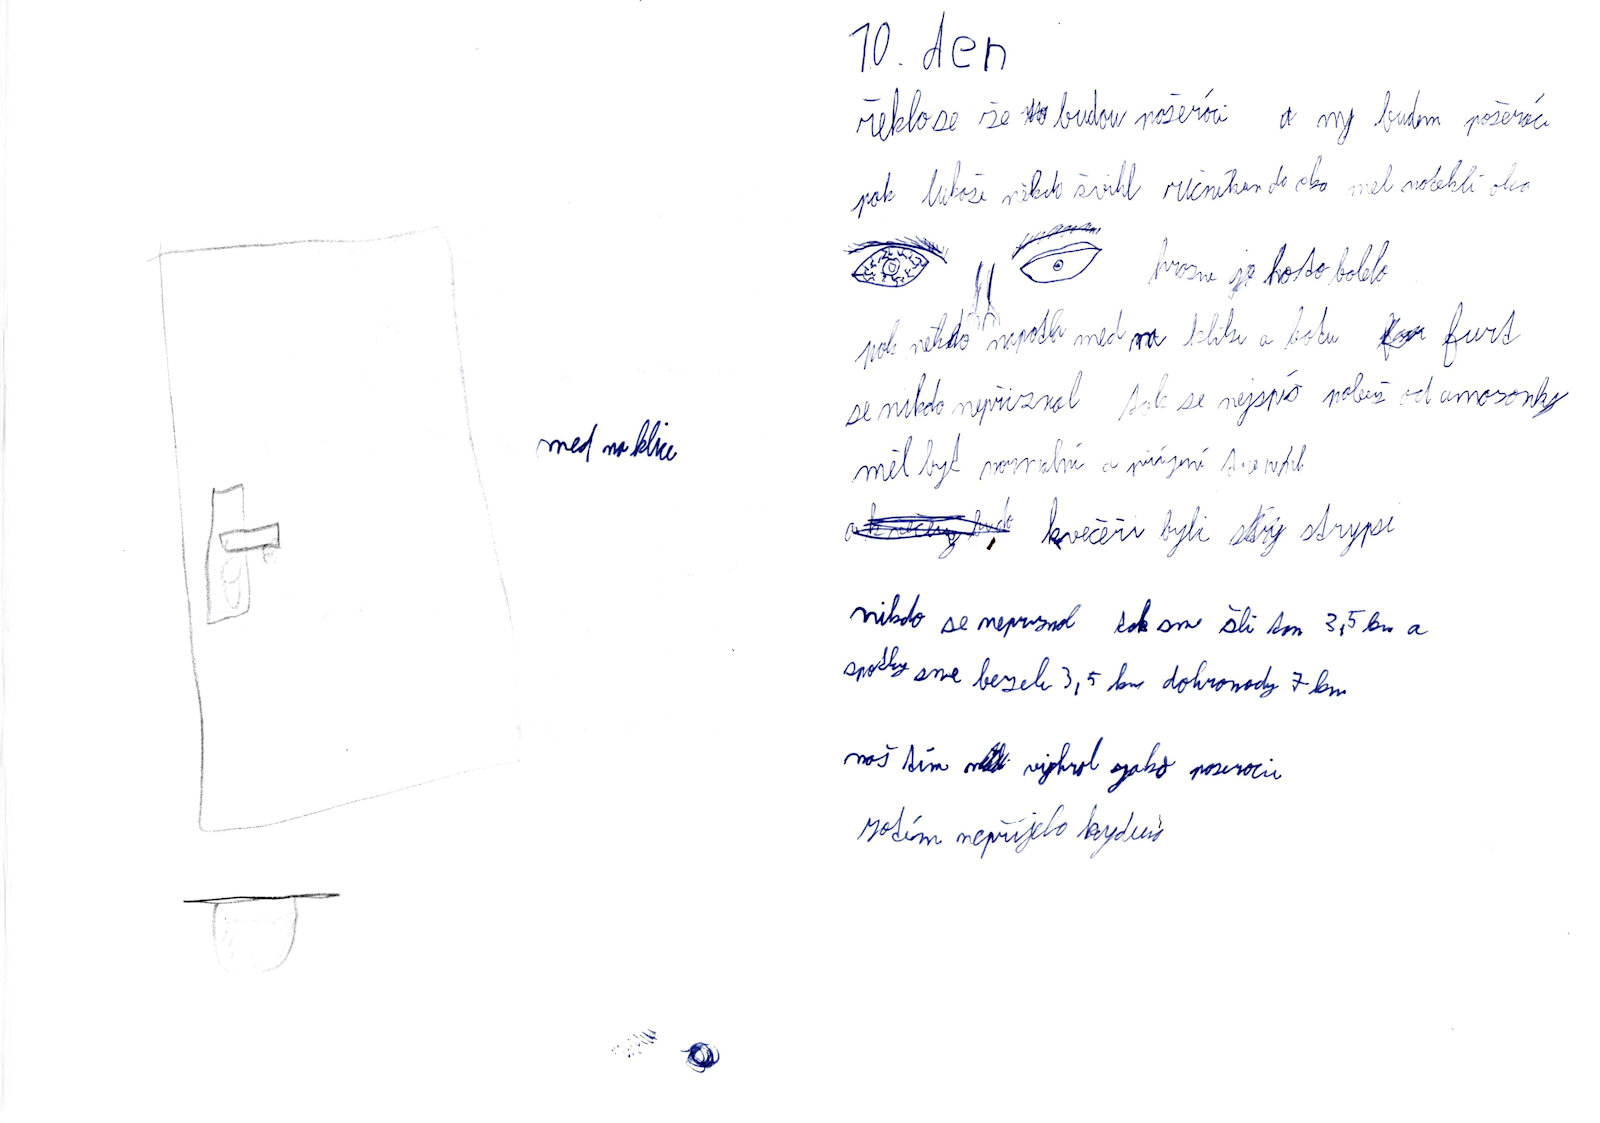 med na klice
10. den
řeklo se že budou požeráci a my budem požeráci
pak lukoši někdo švihl ručníkem do oka mel natekli oko
hrozne je ho to bolelo
pak někdo napatlal med na kliku a botu furt
se nikdo nepřiznal tak se nejspíš od amazonky
měl byt normalní a
kvečeři byli stripsi
nikdo se nepriznal tak sme šli tam 3,5 km a
spatky sme bezeli 3,5 km dohromady 7 km
náš tím vihral jako pozeraci
zatím nepřijelo